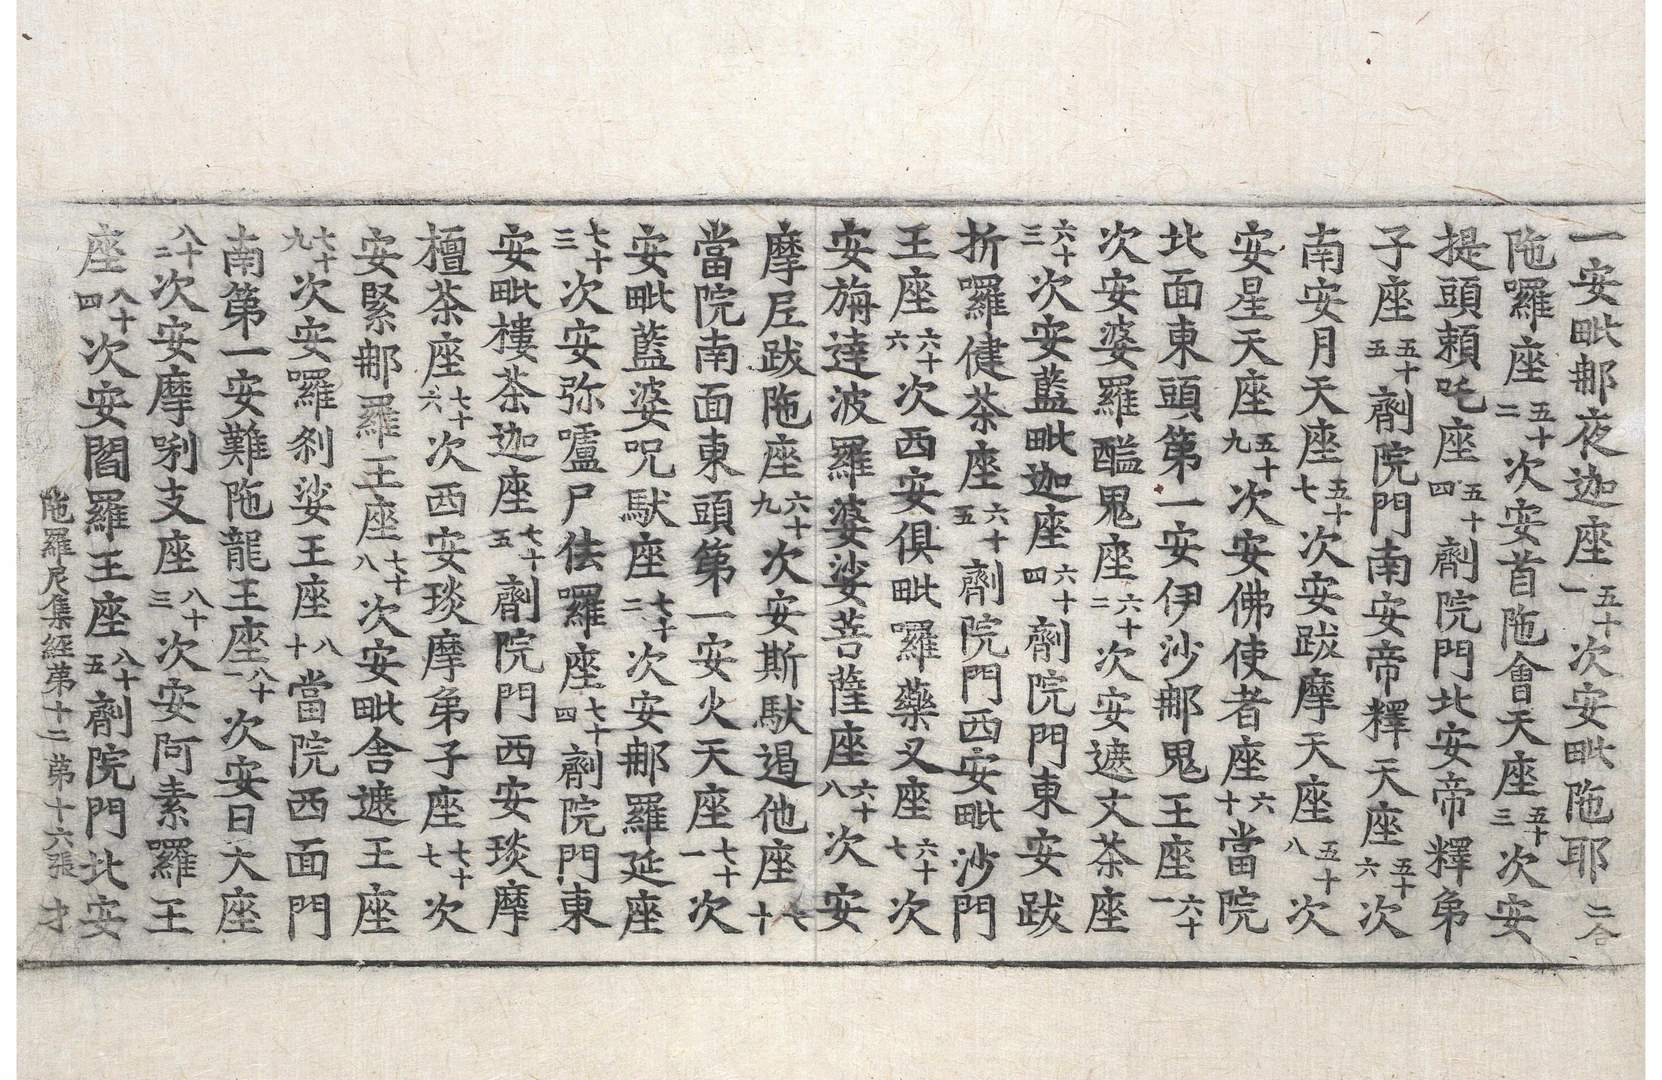 一安毗那夜迦座五十一次安毗陁耶二合
陁囉座五十二次安首陁會天座五十三次安
提頭賴吒座五十四劑院門北安帝釋弟
子座五十五劑院門南安帝釋天座五十六次
南安月天座五十七次安跋摩天座五十八次
安星天座五十九次安佛使者座六十當院
北面東頭第一安伊沙那鬼王座六十一
次安婆羅醯鬼座六十二次安遮文茶座
六十三次安藍毗迦座六十四劑院門東安跋
折囉健茶座六十五劑院門西安毗沙門
王座六十六次西安俱毗囉藥叉座六十七次
安旃達波羅婆娑菩薩座六十八次安
摩尼跋陁座六十九次安斯馱遏他座七十
當院南面東頭第一安火天座七十一次
安毗藍婆呪馱座七十二次安那羅延座
七十三次安弥嚧尸佉囉座七十四劑院門東
安毗樓茶迦座七十五劑院門西安琰摩
檀茶座七十六次西安琰摩弟子座七十七次
安緊那羅王座七十八次安毗舍遮王座
七十九次安囉刹娑王座八十當院西面門
南第一安難陁龍王座八十一次安日天座
八十二次安摩唎支座八十三次安阿素羅王
座八十四次安閻羅王座八十五劑院門北安
陁羅尼集經第十二 第十六張 才